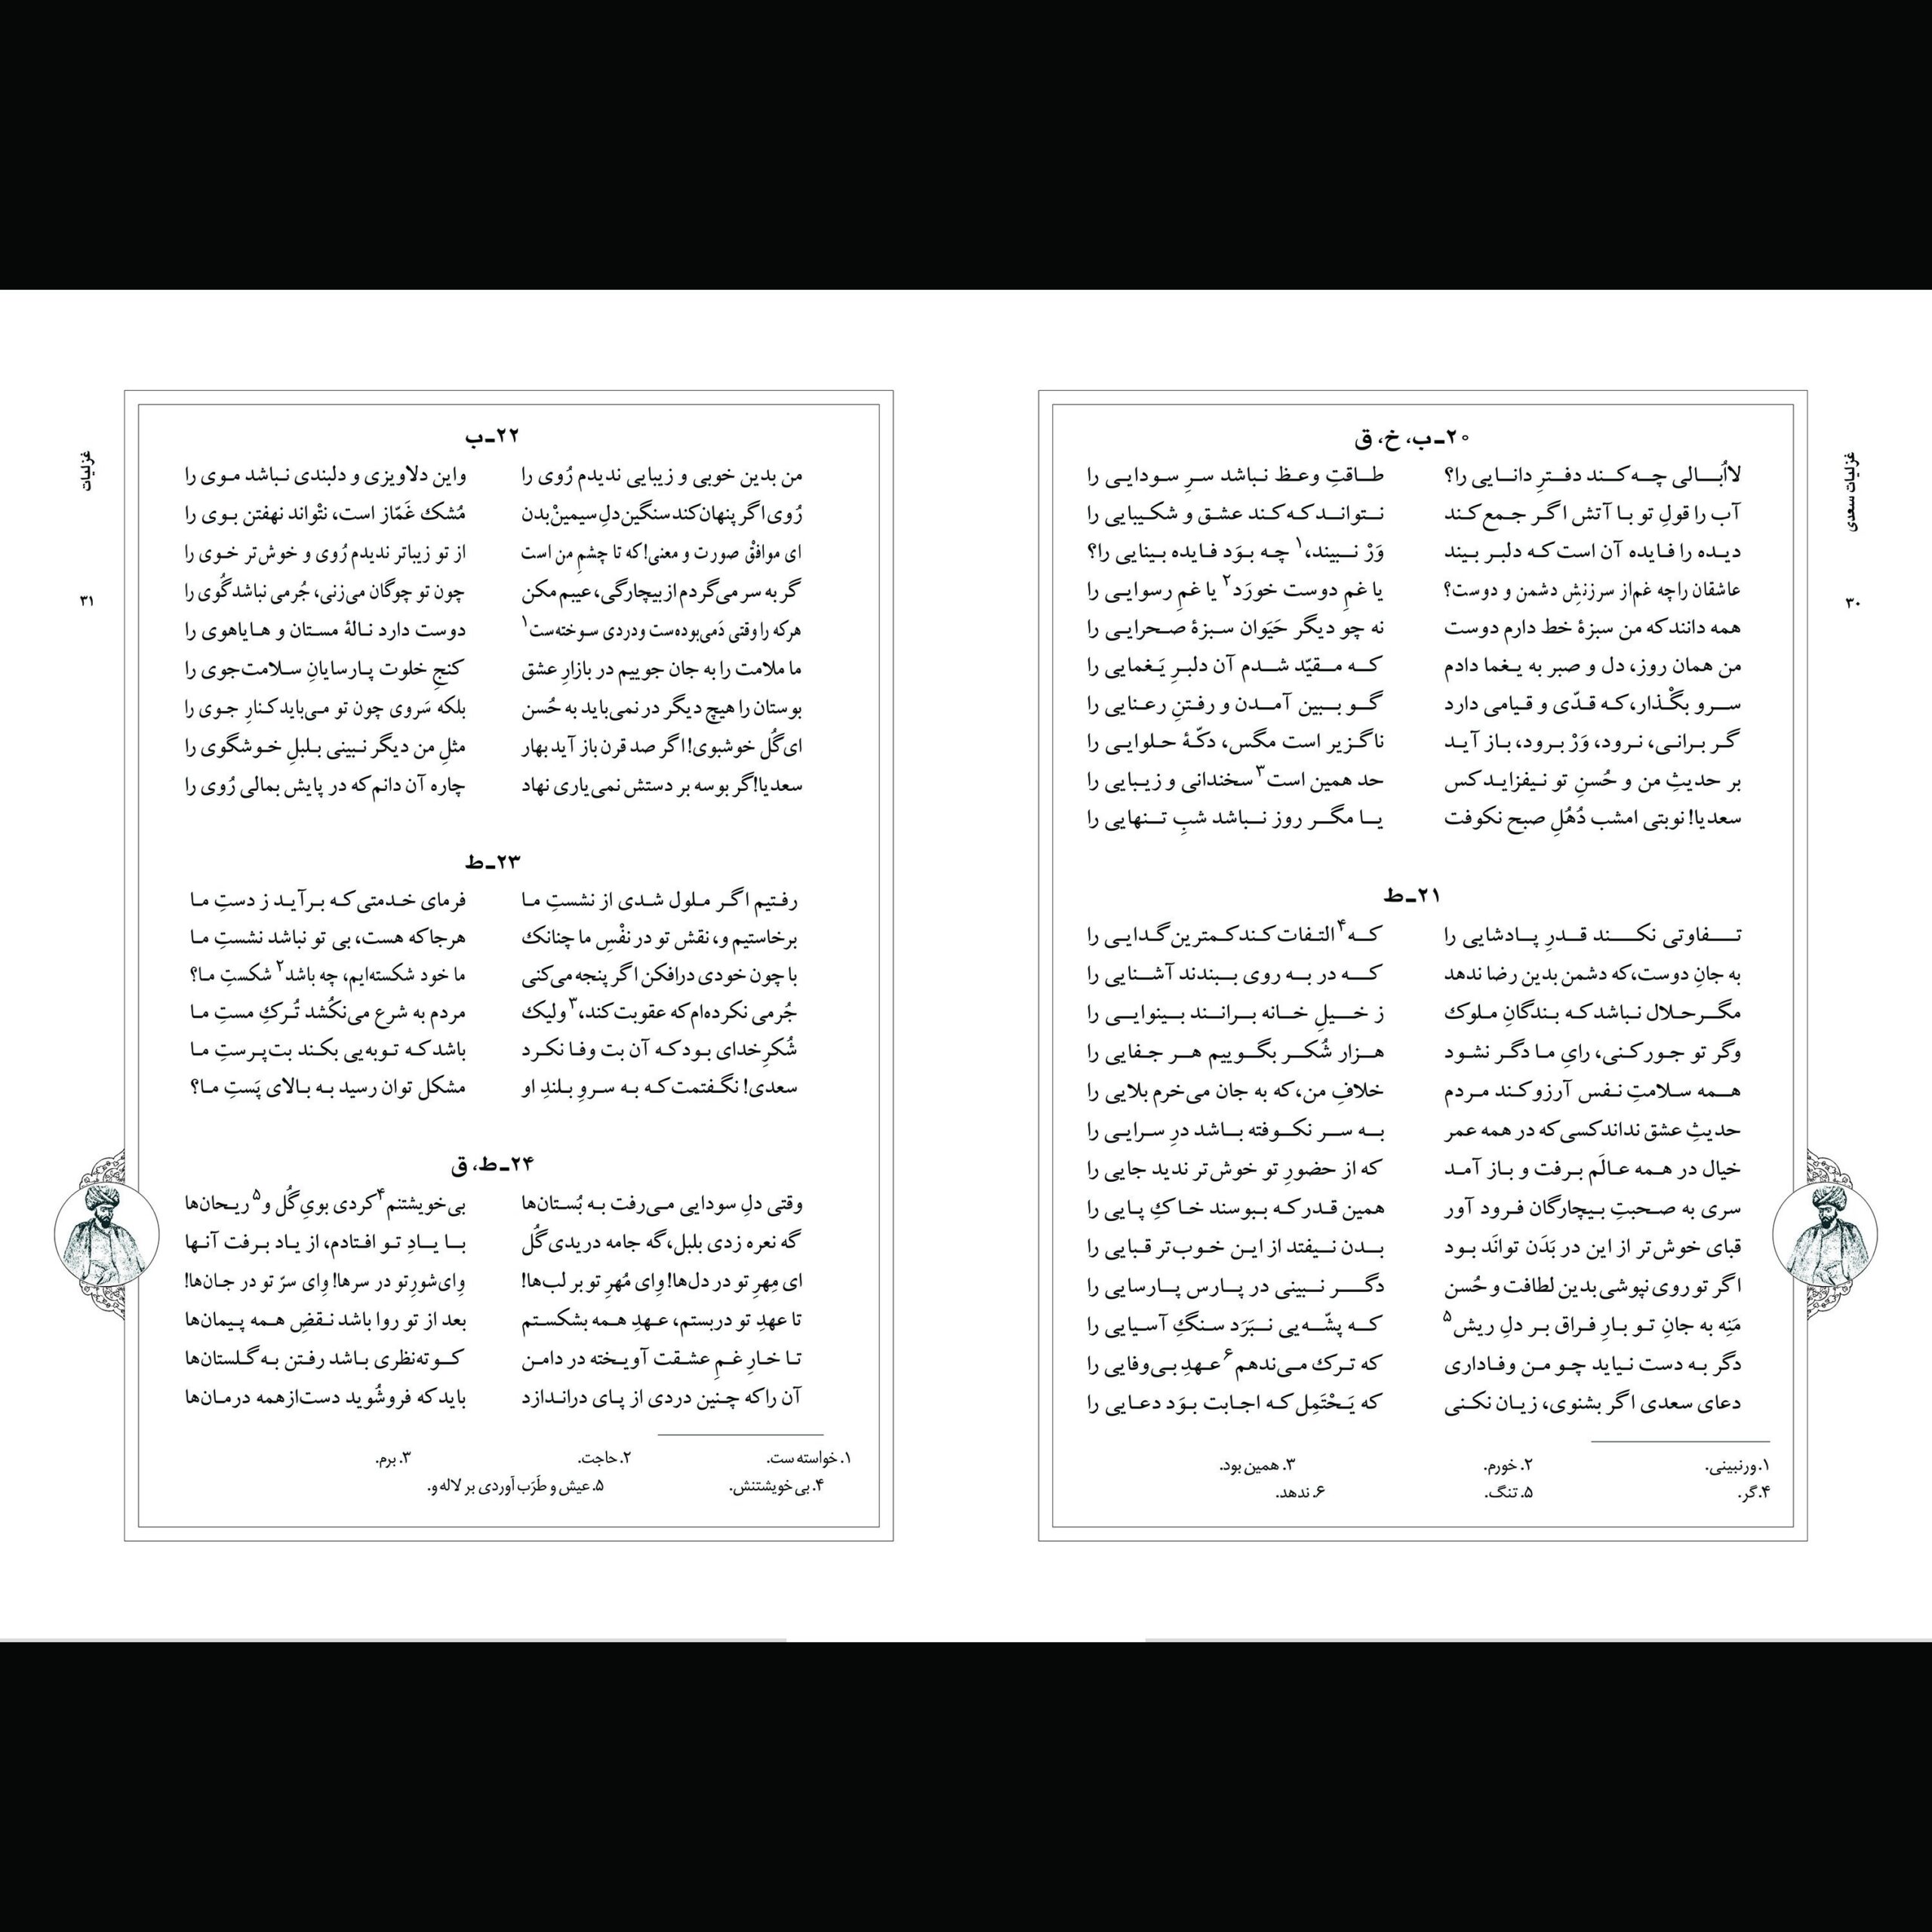 غزلیات سعدی
۳۰
۲۰ـ ب، خ، ق
لااُبالی چه کند دفترِ دانایی را؟ طاقتِ وعظ نباشد سرِ سودایی را
آب را قولِ تو با آتش اگر جمع کند نتواند که کند عشق و شکیبایی را
دیده را فایده آن است که دلبر بیند وَرْ نبیند،۱ چه بوَد فایده بینایی را؟
عاشقان را چه غم از سرزنشِ دشمن و دوست؟ یا غمِ دوست خورَد۲ یا غمِ رسوایی را
همه دانند که من سبزهٔ خط دارم دوست نه چو دیگر حَیَوان سبزهٔ صحرایی را
من همان روز، دل و صبر به یغما دادم که مقیّد شدم آن دلبرِ یَغمایی را
سرو بگْذار، که قدّی و قیامی دارد گو ببین آمدن و رفتنِ رعنایی را
گر برانی، نرود، وَرْ برود، باز آید ناگزیر است مگس، دکّهٔ حلوایی را
بر حدیثِ من و حُسنِ تو نیفزاید کس حد همین است۳ سخندانی و زیبایی را
سعدیا! نوبتی امشب دُهُلِ صبح نکوفت یا مگر روز نباشد شبِ تنهایی را
۲۱ـ ط
تفاوتی نکند قدرِ پادشایی را که۴ التفات کند کمترین گدایی را
به جانِ دوست، که دشمن بدین رضا ندهد که در به روی ببندند آشنایی را
مگر حلال نباشد که بندگانِ ملوک ز خیلِ خانه برانند بینوایی را
وگر تو جور کنی، رایِ ما دگر نشود هزار شُکر بگوییم هر جفایی را
همه سلامتِ نفس آرزو کند مردم خلافِ من، که به جان می‌خرم بلایی را
حدیثِ عشق نداند کسی که در همه عمر به سر نکوفته باشد درِ سرایی را
خیال در همه عالَم برفت و باز آمد که از حضورِ تو خوش‌تر ندید جایی را
سری به صحبتِ بیچارگان فرود آور همین قدر که ببوسند خاکِ پایی را
قبای خوش‌تر از این در بَدَن توانَد بود بدن نیفتد از این خوب‌تر قبایی را
اگر تو روی نپوشی بدین لطافت و حُسن دگر نبینی در پارس پارسایی را
مَنِه به جانِ تو بارِ فراق بر دلِ ریش۵ که پشّه‌یی نبَرَد سنگِ آسیایی را
دگر به دست نیاید چو من وفاداری که ترک می‌ندهم۶ عهدِ بی‌وفایی را
دعای سعدی اگر بشنوی، زیان نکنی که یَحْتَمِل که اجابت بوَد دعایی را
۱. ورنبینی. ۲. خورم. ۳. همین بود.
۴. گر. ۵. تنگ. ۶. ندهد.
غزلیات
۳۱
۲۲ـ ب
من بدین خوبی و زیبایی ندیدم رُوی را واین دلاویزی و دلبندی نباشد موی را
رُوی اگر پنهان کند سنگین دلِ سیمینْ‌بدن مُشک غَمّاز است، نتْواند نهفتن بوی را
ای موافقْ صورت و معنی! که تا چشمِ من است از تو زیباتر ندیدم رُوی و خوش‌تر خوی را
گر به سر می‌گردم از بیچارگی، عیبم مکن چون تو چوگان می‌زنی، جُرمی نباشد گُوی را
هرکه را وقتی دَمی بوده‌ست و دردی سوخته‌ست۱ دوست دارد نالهٔ مستان و هایاهوی را
ما ملامت را به جان جوییم در بازارِ عشق کنجِ خلوت پارسایانِ سلامت‌جوی را
بوستان را هیچ دیگر در نمی‌باید به حُسن بلکه سَروی چون تو می‌باید کنارِ جوی را
ای گُل خوشبوی! اگر صد قرن باز آید بهار مثلِ من دیگر نبینی بلبلِ خوشگوی را
سعدیا! گر بوسه بر دستش نمی‌یاری نهاد چاره آن دانم که در پایش بمالی رُوی را
۲۳ـ ط
رفتیم اگر ملول شدی از نشستِ ما فرمای خدمتی که برآید ز دستِ ما
برخاستیم و، نقش تو در نفْسِ ما چنانک هرجا که هست، بی تو نباشد نشستِ ما
با چون خودی درافکن اگر پنجه می‌کنی ما خود شکسته‌ایم، چه باشد۲ شکستِ ما؟
جُرمی نکرده‌ام که عقوبت کند،۳ ولیک مردم به شرع می‌نکُشد تُرکِ مستِ ما
شُکرِ خدای بود که آن بت وفا نکرد باشد که توبه‌یی بکند بت‌پرستِ ما
سعدی! نگفتمت که به سروِ بلندِ او مشکل توان رسید به بالای پَستِ ما؟
۲۴ـ ط، ق
وقتی دلِ سودایی می‌رفت به بُستان‌ها بی‌خویشتنم۴ کردی بویِ گُل و۵ ریحان‌ها
گه نعره زدی بلبل، گه جامه دریدی گُل با یادِ تو افتادم، از یاد برفت آنها
ای مِهرِ تو در دل‌ها! وِای مُهرِ تو بر لب‌ها! وِای شورِ تو در سرها! وِای سرّ تو در جان‌ها!
تا عهدِ تو دربستم، عهدِ همه بشکستم بعد از تو روا باشد نقضِ همه پیمان‌ها
تا خارِ غمِ عشقت آویخته در دامن کوته‌نظری باشد رفتن به گلستان‌ها
آن را که چنین دردی از پای دراندازد باید که فروشُوید دست از همه درمان‌ها
۱. خواسته ست. ۲. حاجت. ۳. برم.
۴. بی خویشتنش. ۵. عیش و طَرَب آوردی بر لاله و.